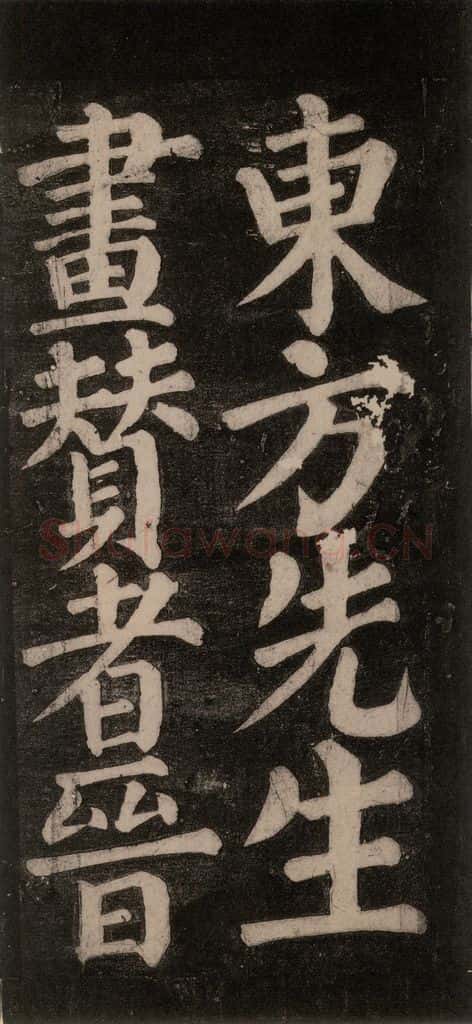 東方先生
畫賛者晉
Shufawang.CN